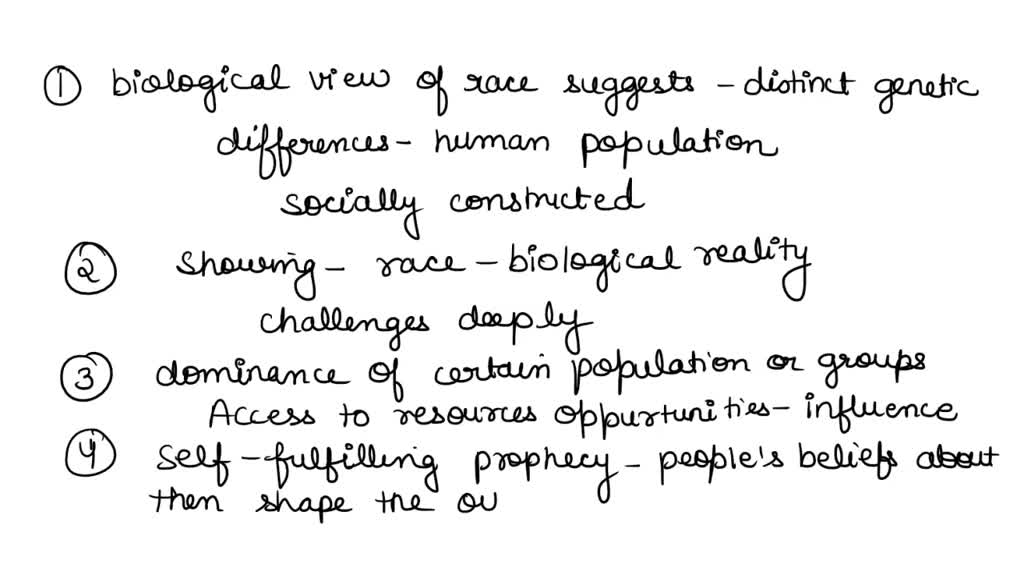 ① biological view of race suggests - distinct genetic
differences - human population
socially constructed
② showing - race - biological reality
challenges deeply
③ dominance of certain population or groups
Access to resources oppurtunities - influence
④ self - fulfilling prophecy - people's beliefs about
then shape the ou